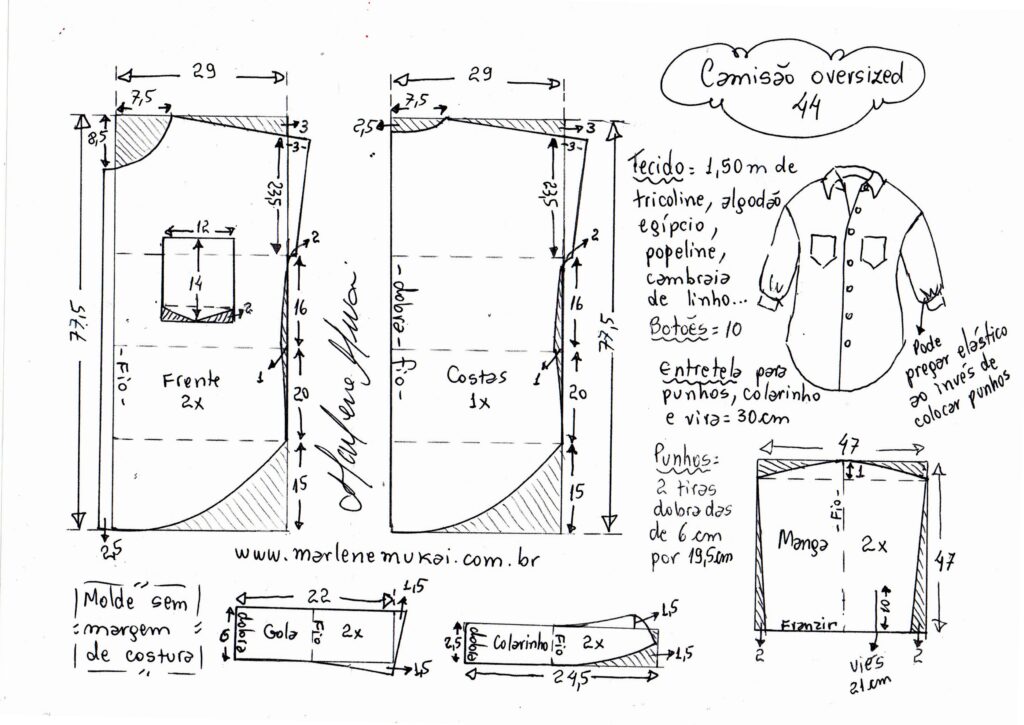 Camisão oversized
44
29
7,5
8,5
3
-3-
23,5
2
12
14
2
77,5
16
1
20
15
-Fio-
Frente
2x
2,5
29
7,5
2,5
3
-3-
23,5
2
-dobra-
-Fio-
16
1
20
15
77,5
Costas
1x
Marlene Mukai
Tecido = 1,50 m de
tricoline, algodão
egípcio,
popeline,
cambraia
de linho...
Botões = 10
Entretela para
punhos, colarinho
e vira = 30 cm
Punhos=
2 tiras
dobradas
de 6 cm
por 19,5cm
Pode
pregar elástico
ao invés de
colocar punhos
47
1
-Fio-
Manga 2x
47
10
Franzir
2
2
viés
21 cm
www.marlenemukai.com.br
Molde sem
margem
de costura
22
1,5
6
dobra
Gola
Fio
2x
1,5
2,5
dobra
Colarinho
Fio
2x
1,5
1,5
24,5